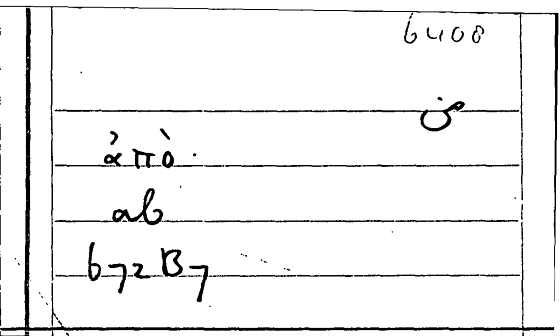 6408
ἀπὸ
ab
672B7